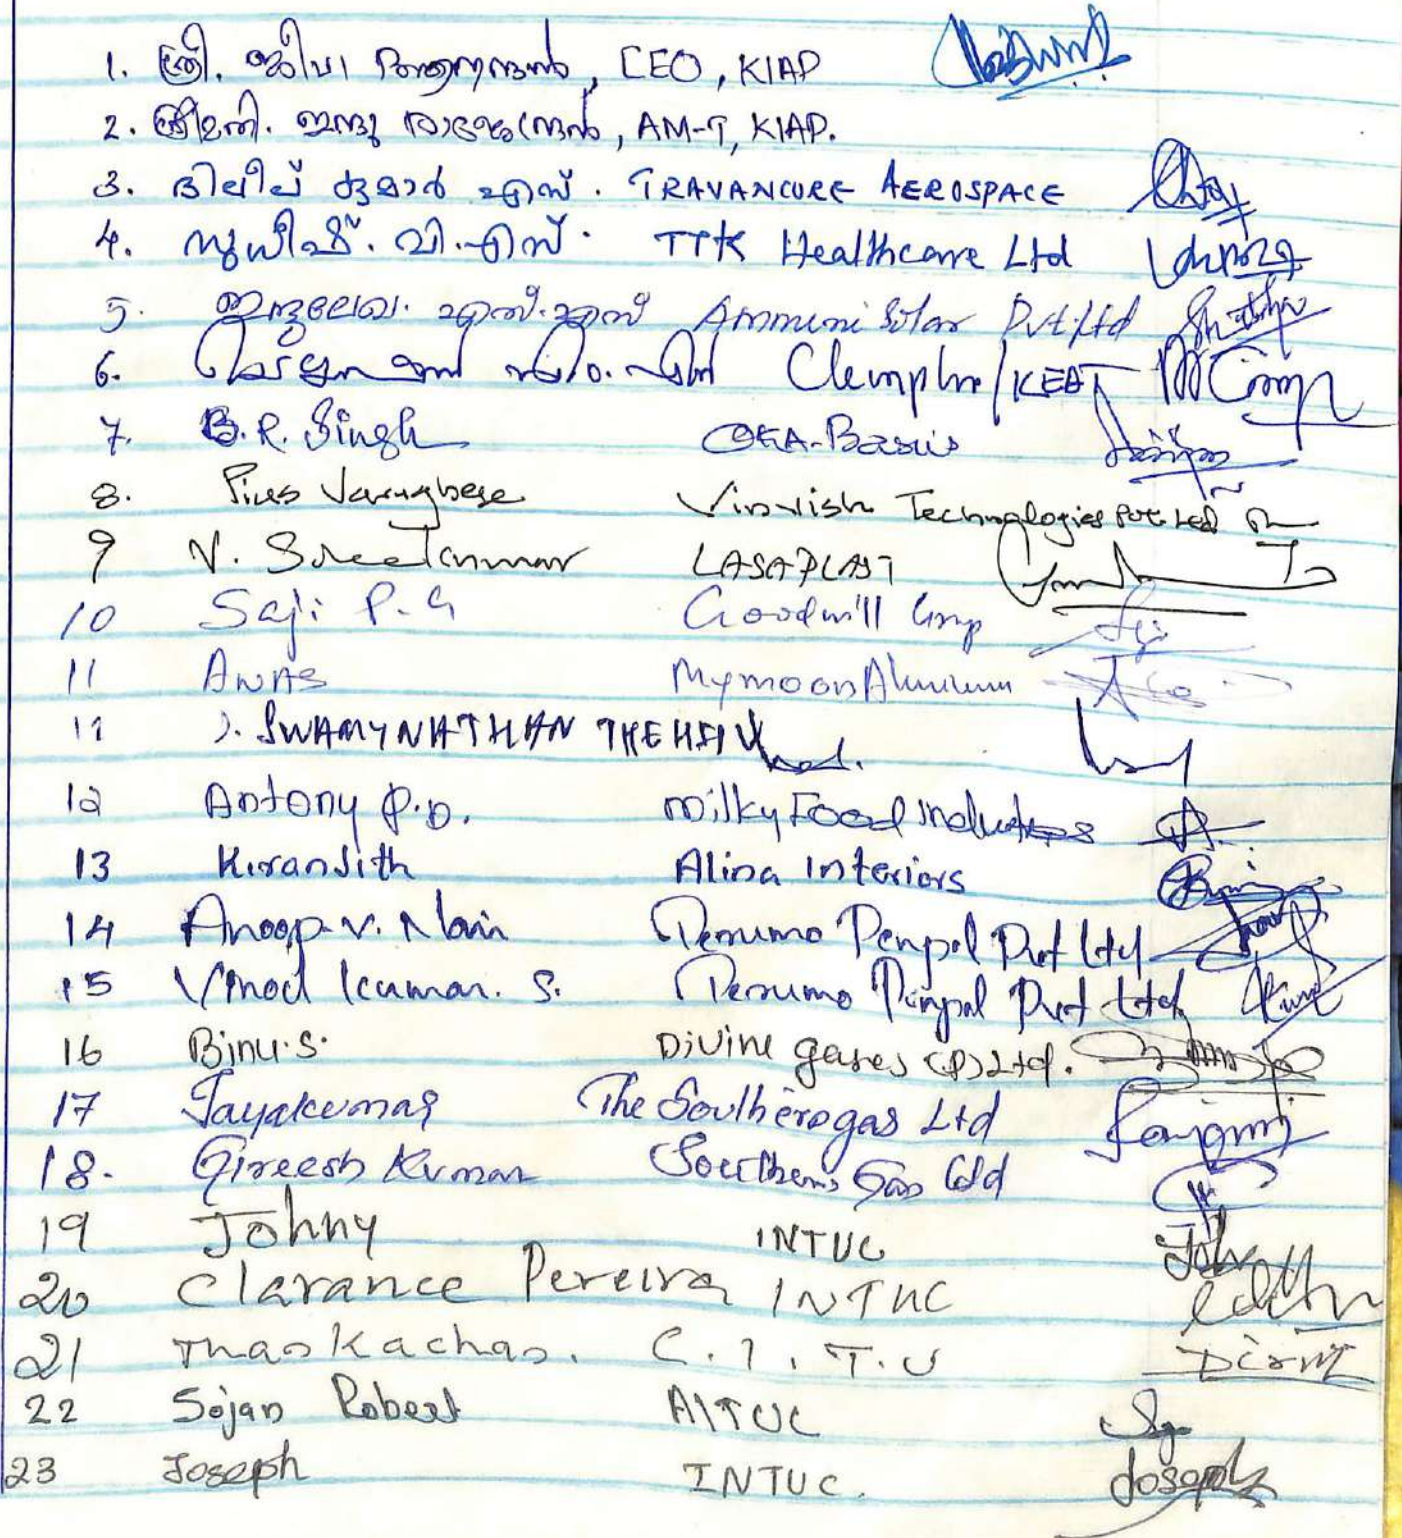 1. ശ്രീ. ജീവാ ആനന്ദൻ, CEO, KIAP
2. ശ്രീമതി. ഇന്ദു രാജേന്ദ്രൻ, AM-T, KIAP.
3. ദിലീപ് കുമാർ എസ്. TRAVANCORE AEROSPACE
4. സുധീഷ്. വി.എസ്. TTK Healthcare Ltd
5. ഇന്ദുലേഖ. എസ്.എസ് Ammini Solar Pvt.Ltd
6. /KEAT
7. B.R. Singh
8. Pius Varughese Vinvish Technologies Pvt Ltd
9 V. Sreekumar LASAPLAST
10 Saji P.G Goodwill
11 ANAS Mymoon Aluminium
11 SWAMYNATHAN
12 Antony P.D. Milky Food Industries
13 Kiranjith Alina Interiors
14 Anoop.V. Nair Penpol Pvt Ltd
15 Vinod Kumar. S. Penpol Pvt Ltd
16 Binu.S. Divine gases (P) Ltd.
17 Jayakumar The Southern gas Ltd
18. Gireesh Kumar Southern Gas Ltd
19 Johny INTUC
20 Clarance Pereira INTUC
21 C.I.T.U
22 Sojan Robert AITUC
23 Joseph INTUC. Joseph